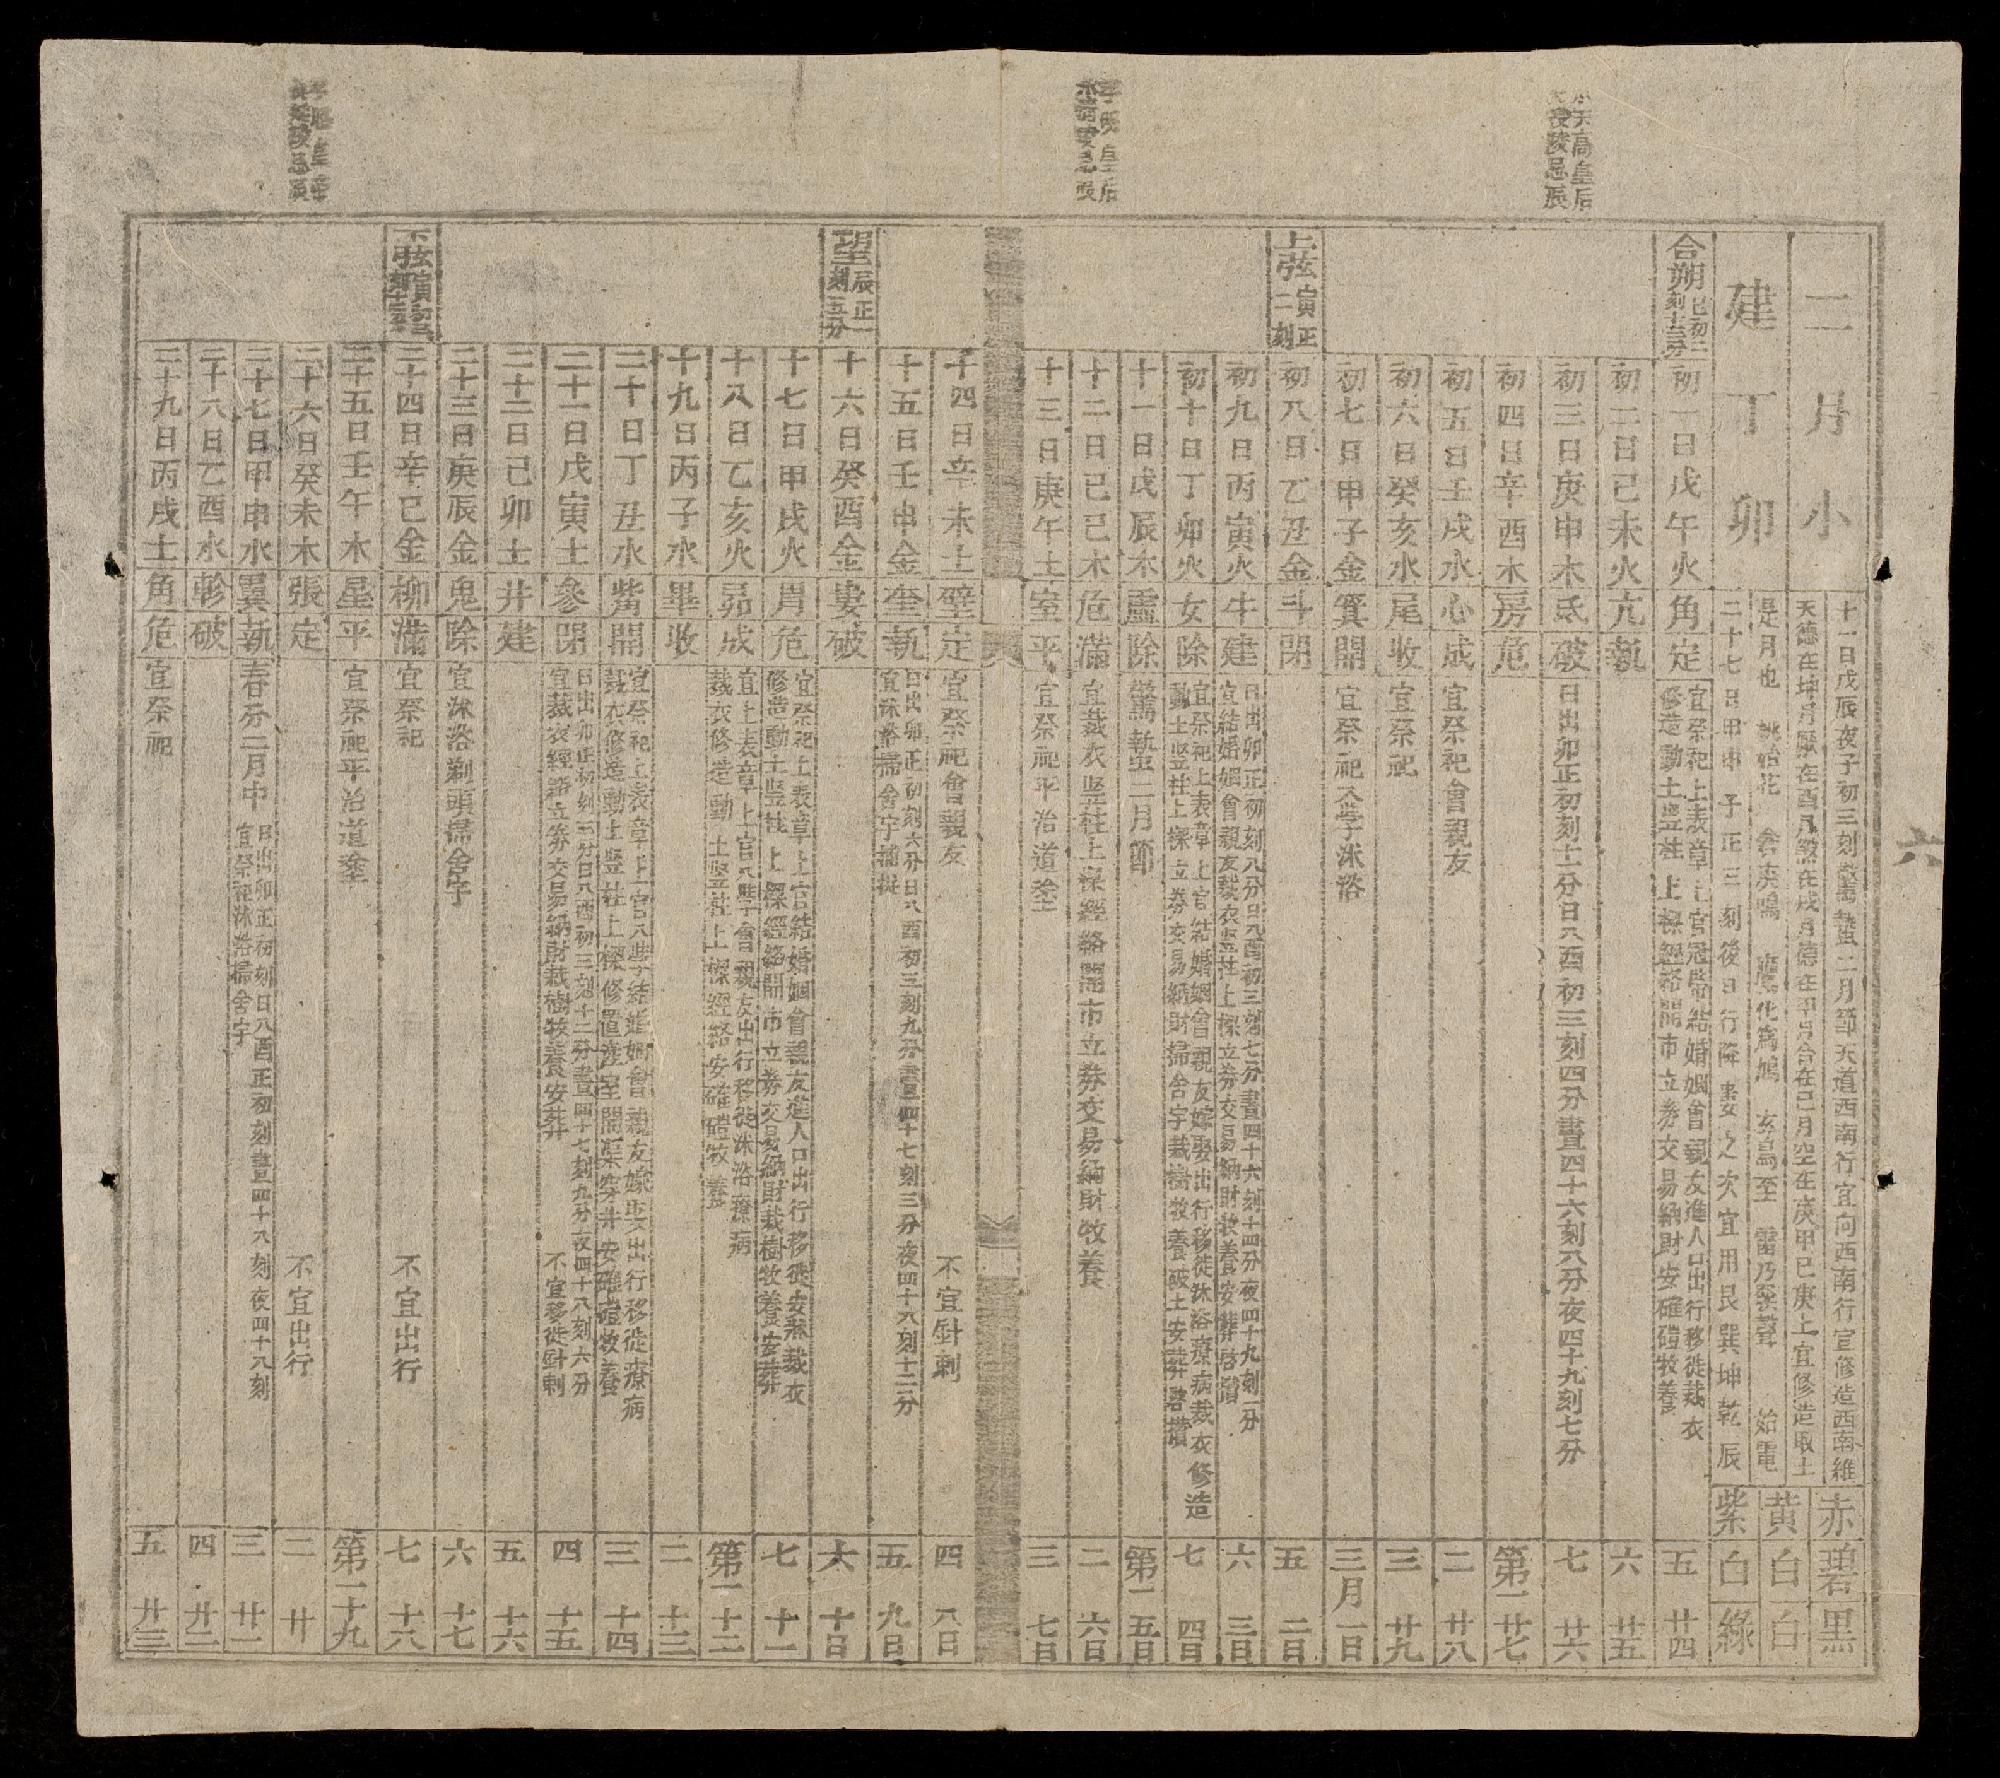 承天高皇后
天授陵忌辰
二月小
建丁卯
十一日戊辰夜子初三刻驚蟄二月節天道西南行宜向西南行宜修造西南維
天德在坤月厭在酉月煞在戌月德在甲月合在己月空在庚甲己庚上宜修造取土
是月也 桃始花 倉庚鳴 鷹化為鳩 玄鳥至 雷乃發聲 始電
二十七日甲申子正三刻後日行降婁之次宜用艮巽坤乾辰
赤碧黑
黄白白
紫白綠
合朔
初一日戊午火角定 宜祭祀上表章上官冠帶結婚姻會親友進人口出行移徙裁衣
修造動土竪柱上樑經絡開市立券交易納財安確磑牧養 五 廿四
初二日己未火亢執 六 廿五
初三日庚申木氐破 日出卯正初刻十一分日入酉初三刻四分晝四十六刻八分夜四十九刻七分 七 廿六
初四日辛酉木房危 第一 廿七
初五日壬戌水心成 宜祭祀會親友 二 廿八
初六日癸亥水尾收 宜祭祀 三 廿九
初七日甲子金箕開 宜祭祀入學沐浴 三月一日
上弦寅正二刻
初八日乙丑金斗閉 五 二日
初九日丙寅火牛建 日出卯正初刻八分日入酉初三刻七分晝四十六刻十四分夜四十九刻一分
宜結婚姻會親友裁衣竪柱上樑立券交易納財牧養安葬啓攢 六 三日
初十日丁卯火女除 宜祭祀上表章上官結婚姻會親友嫁娶出行移徙沐浴療病裁衣修造
動土竪柱上樑立券交易納財掃舍宇栽樹牧養破土安葬啓攢 七 四日
十一日戊辰木虛除 驚蟄二月節 第一 五日
十二日己巳木危滿 宜裁衣竪柱上樑經絡開市立券交易納財牧養 二 六日
十三日庚午土室平 宜祭祀平治道塗 三 七日
十四日辛未土壁定 宜祭祀會親友 不宜針刺 四 八日
十五日壬申金奎執 日出卯正初刻六分日入酉初三刻九分晝四十七刻三分夜四十八刻十二分
宜沐浴掃舍宇捕捉 五 九日
望辰正一刻五分
十六日癸酉金婁破 六 十日
十七日甲戌火胃危 宜祭祀上表章上官結婚姻會親友進人口出行移徙安牀裁衣
修造動土竪柱上樑經絡開市立券交易納財栽樹牧養安葬 七 十一
十八日乙亥火昴成 宜上表章上官入學會親友出行移徙沐浴療病
裁衣修造動土竪柱上樑經絡安確磑牧養 第一 十二
十九日丙子水畢收 二 十三
二十日丁丑水觜開 宜祭祀上表章上官入學結婚姻會親友嫁娶出行移徙療病
裁衣修造動土竪柱上樑修置產室開渠穿井安確磑牧養 三 十四
二十一日戊寅土參閉 日出卯正初刻三分日入酉初三刻十二分晝四十七刻九分夜四十八刻六分
宜裁衣經絡立券交易納財栽樹牧養安葬 不宜移徙針刺 四 十五
二十二日己卯土井建 五 十六
二十三日庚辰金鬼除 宜沐浴剃頭掃舍宇 六 十七
下弦
二十四日辛巳金柳滿 宜祭祀 不宜出行 七 十八
二十五日壬午木星平 宜祭祀平治道塗 第一 十九
二十六日癸未木張定 不宜出行 二 廿
二十七日甲申水翼執 春分二月中 日出卯正初刻日入酉正初刻晝四十八刻夜四十八刻
宜祭祀沐浴掃舍宇 三 廿一
二十八日乙酉水軫破 四 廿二
二十九日丙戌土角危 宜祭祀 五 廿三
六